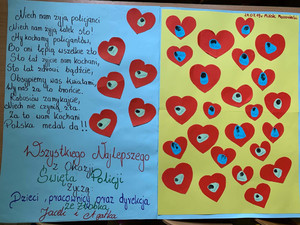 Niech nam żyją policjanci
Niech nam żyją tak sto!
My kochamy policjantów,
Bo oni tępią wszelkie zło
Sto lat życie nam kochani,
Sto lat zdrowi bądźcie,
Obsypiemy was kwiatami,
Wy nas za to brońcie.
Rabusiów zamykajcie,
Niech nie czynią zła.
Za to wam kochani
Polska medal da!!
Wszystkiego Najlepszego
z Okazji
Święta Policji
Życzą
Dzieci, pracownicy oraz dyrekcja
ze żłobka
Jacek i Agatka